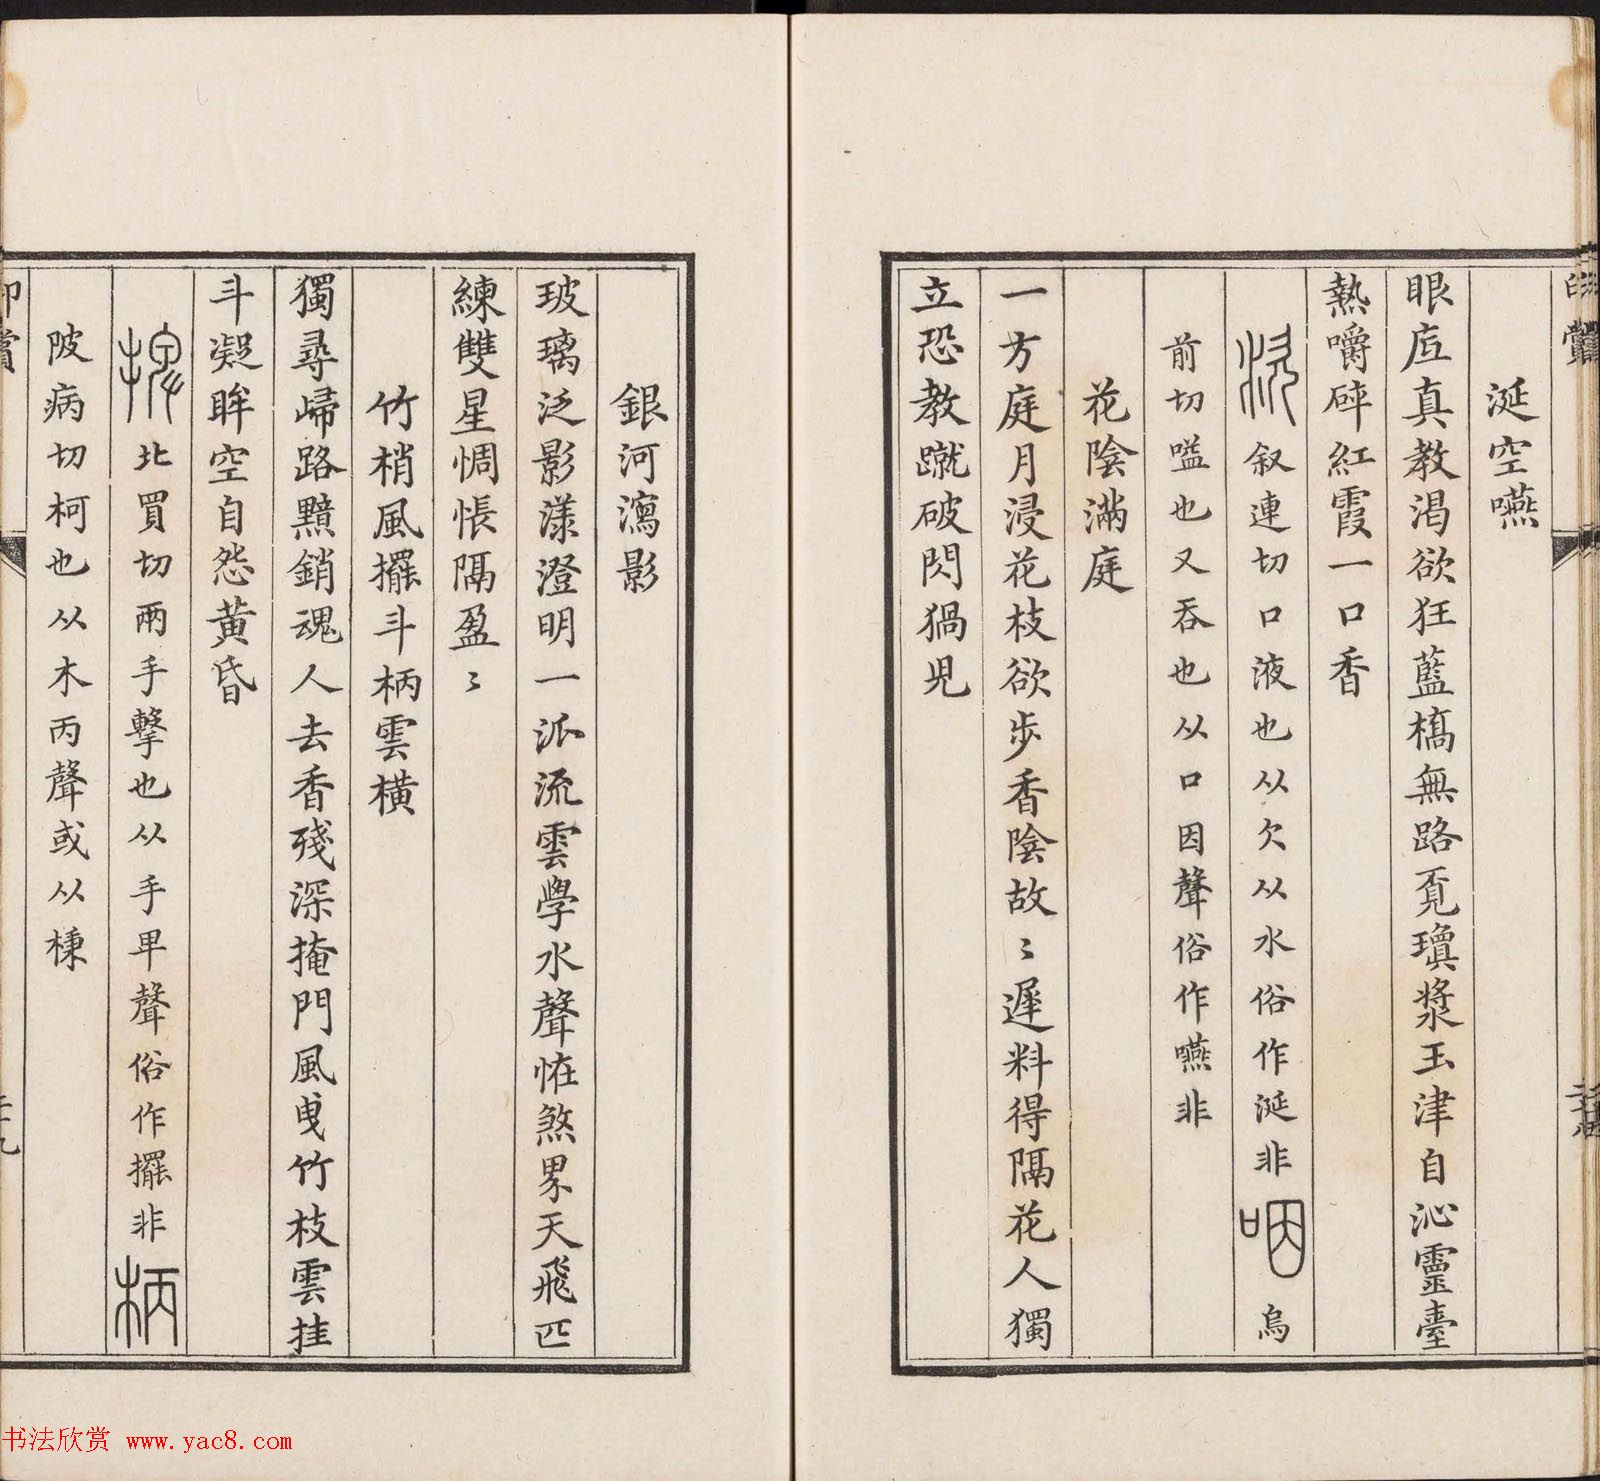 涎空嚥
眼底真教渴欲狂藍橋無路覓瓊漿玉津自沁靈臺
熱嚼碎紅霞一口香
㳄叙連切口液也从欠从水俗作涎非咽烏
前切嗌也又吞也从口因聲俗作嚥非
花陰滿庭
一方庭月浸花枝欲步香陰故〻遲料得隔花人獨
立恐教蹴破閃猧兒
銀河瀉影
玻璃泛影漾澄明一派流雲學水聲恠煞界天飛匹
練雙星惆悵隔盈〻
竹梢風擺斗柄雲橫
獨尋歸路黯銷魂人去香殘深掩門風曳竹枝雲挂
斗凝眸空自怨黄昏
北買切兩手擊也从手卑聲俗作擺非柄
陂病切柯也从木丙聲或从棅
印賞
二十九
书法欣赏 www.yac8.com